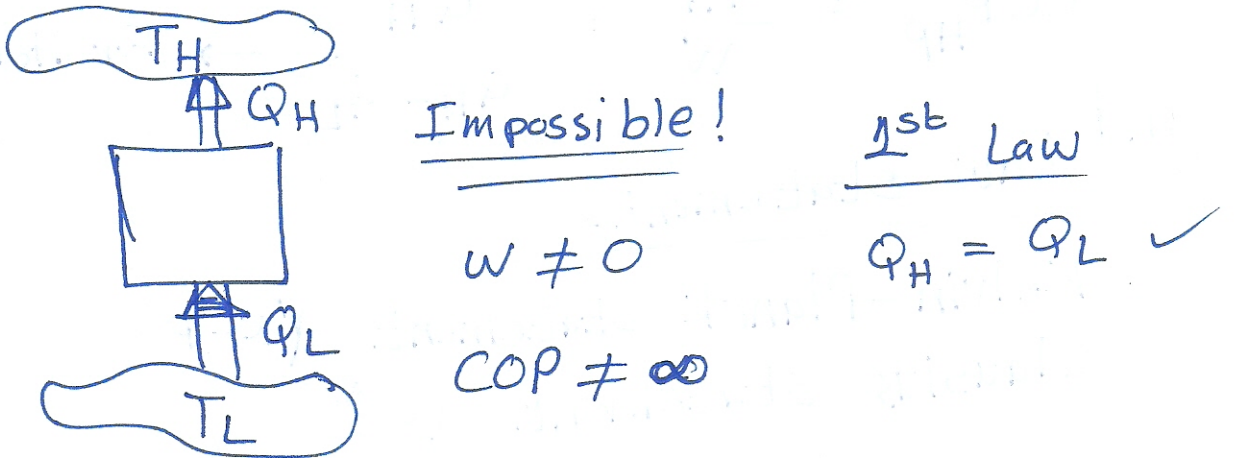 TH
QH
QL
TL
Impossible!
W ≠ 0
COP ≠ ∞
1st Law
QH = QL ✓